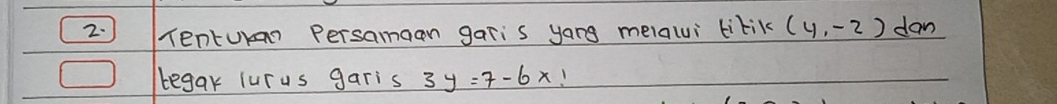 2. Tentukan Persamaan garis yang melalui titik (4,-2) dan
tegak lurus garis 3y=7-6x!